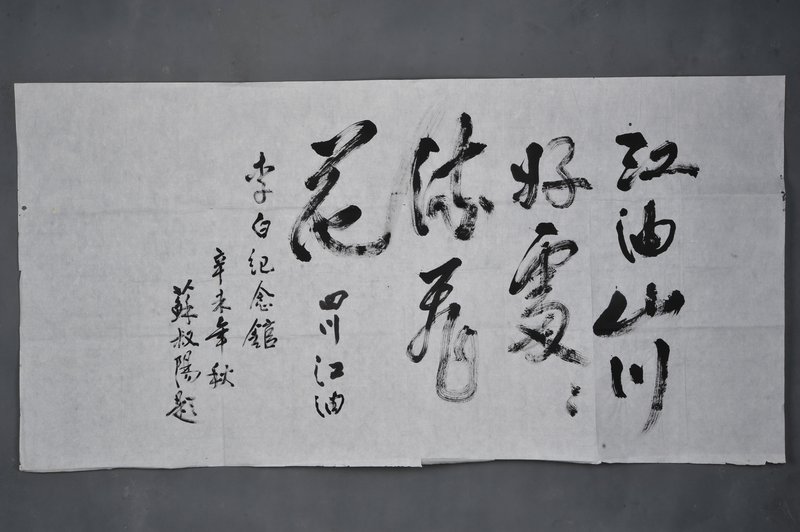 江油山川
好處〻
飛
花
四川江油
李白紀念館
辛未年秋
蘇叔陽題